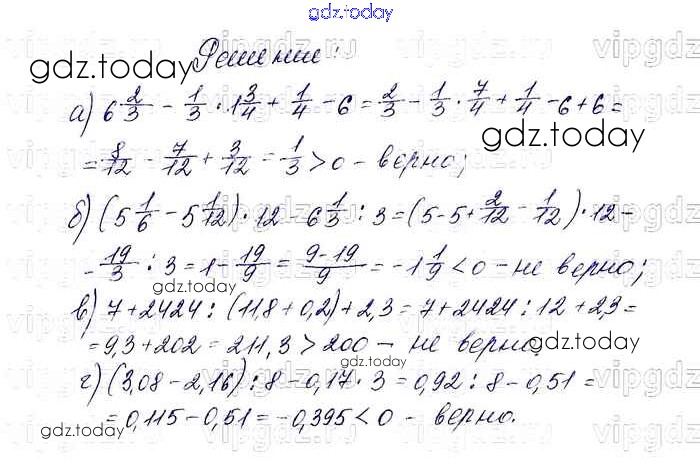 gdz.today
Решение:
gdz.today
а) 6 2/3 - 1/3 · 1 3/4 + 1/4 - 6 = 2/3 - 1/3 · 7/4 + 1/4 - 6 + 6 =
gdz.today
= 8/12 - 7/12 + 3/12 = 1/3 > 0 - верно;
б) (5 1/6 - 5 1/12) · 12 - 6 1/3 : 3 = (5 - 5 + 2/12 - 1/12) · 12 -
- 19/3 : 3 = 1 - 19/9 = (9-19)/9 = -1 1/9 < 0 - не верно;
gdz.today
в) 7 + 2424 : (11,8 + 0,2) + 2,3 = 7 + 2424 : 12 + 2,3 =
= 9,3 + 202 = 211,3 > 200 - не верно.
gdz.today
г) (3,08 - 2,16) : 8 - 0,17 · 3 = 0,92 : 8 - 0,51 =
= 0,115 - 0,51 = -0,395 < 0 - верно.
gdz.today